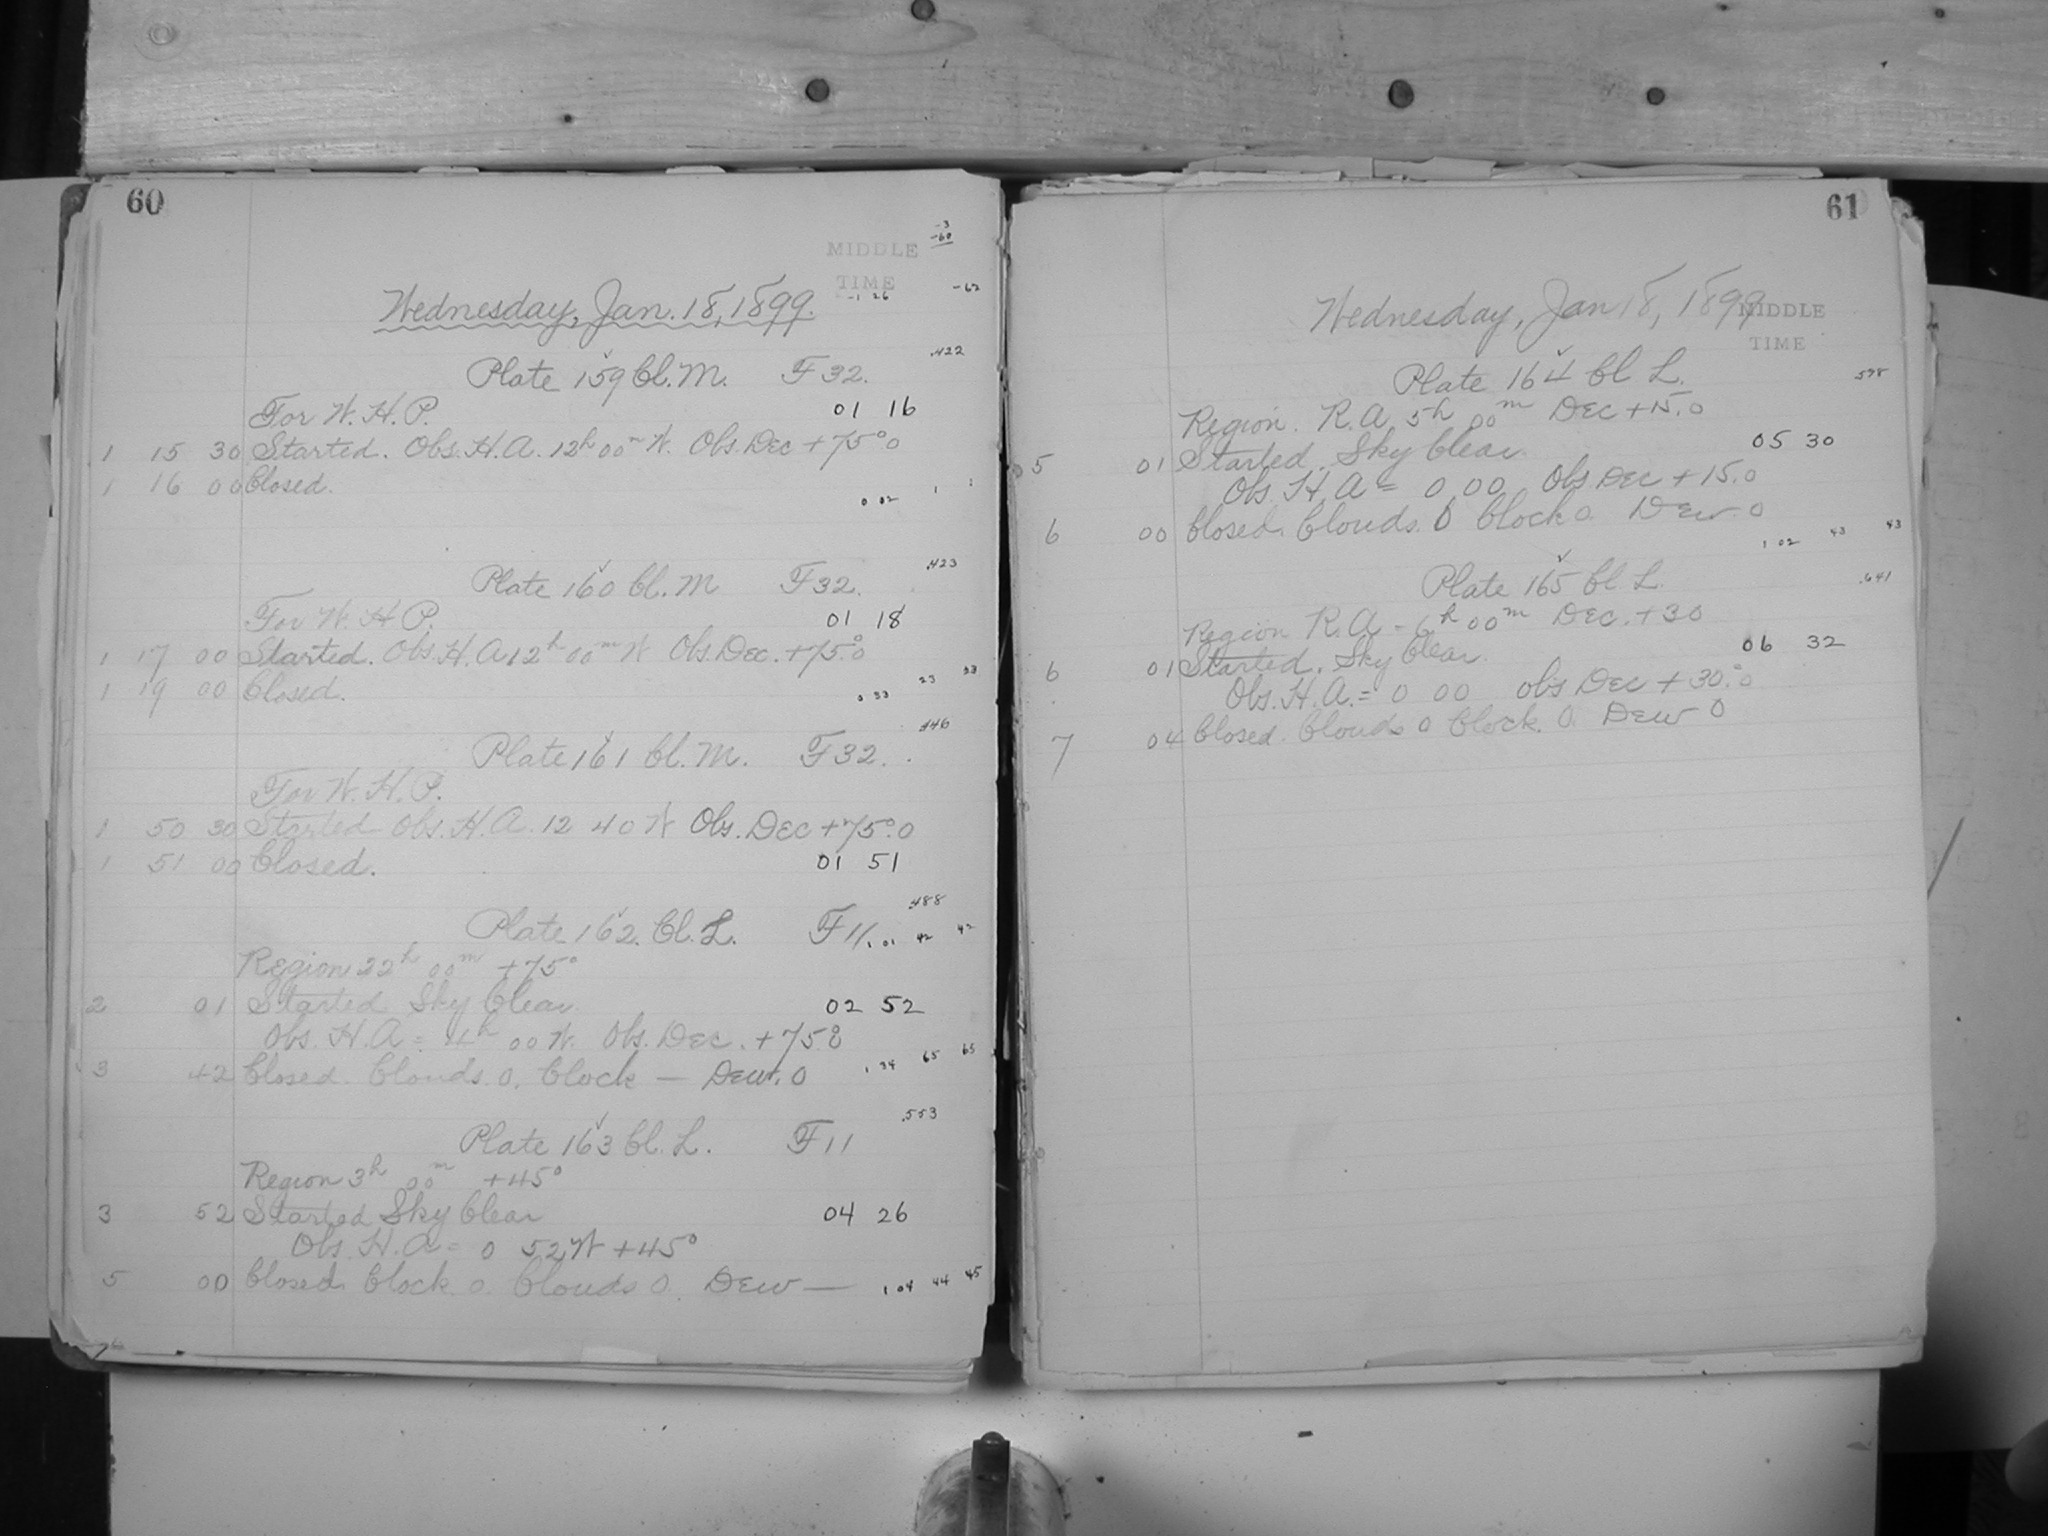 60
-3
-60
MIDDLE
TIME
-1 26 -62
Wednesday, Jan. 18, 1899.
.422
Plate 159 Cl. M. F 32.
For W. H. P. 01 16
1 15 30 Started. Obs. H. A. 12h 00m W. Obs. Dec +75°.0
1 16 00 Closed.
0 02 1 1
.423
Plate 160 Cl. M F 32.
For W. H. P. 01 18
1 17 00 Started. Obs. H. A 12h 00m W Obs. Dec. +75°.0
1 19 00 Closed.
0 33 23 23
.446
Plate 161 Cl. M. F 32.
For W. H. P.
1 50 30 Started Obs. H. A. 12 40 W Obs. Dec +75°.0
1 51 00 Closed. 01 51
.488
Plate 162. Cl. L. F 11
1 01 42 42
Region 22h 00m +75°
2 01 Started Sky Clear. 02 52
Obs. H. A = 4h 00 W. Obs. Dec. +75.°0
3 42 Closed. Clouds. 0. Clock — Dew. 0
1 34 65 65
.553
Plate 163 Cl. L. F 11
Region 3h 00m +45°
3 52 Started Sky Clear 04 26
Obs. H. A = 0 52 W +45°
5 00 Closed. Clock. 0. Clouds 0. Dew —
1 04 44 45
61
Wednesday, Jan 18, 1899
MIDDLE
TIME
Plate 164 Cl L. .598
Region. R. A 5h 00m Dec +15.0
5 01 Started. Sky Clear. 05 30
Obs. H. A = 0 00 Obs Dec +15.0
6 00 Closed. Clouds. 0 Clock 0. Dew. 0
1 02 43 43
Plate 165 Cl. L. .641
Region R. A - 6h 00m Dec. +30
6 01 Started. Sky Clear. 06 32
Obs. H. A. = 0 00 Obs Dec +30.°0
7 04 Closed. Clouds 0 Clock. 0. Dew 0